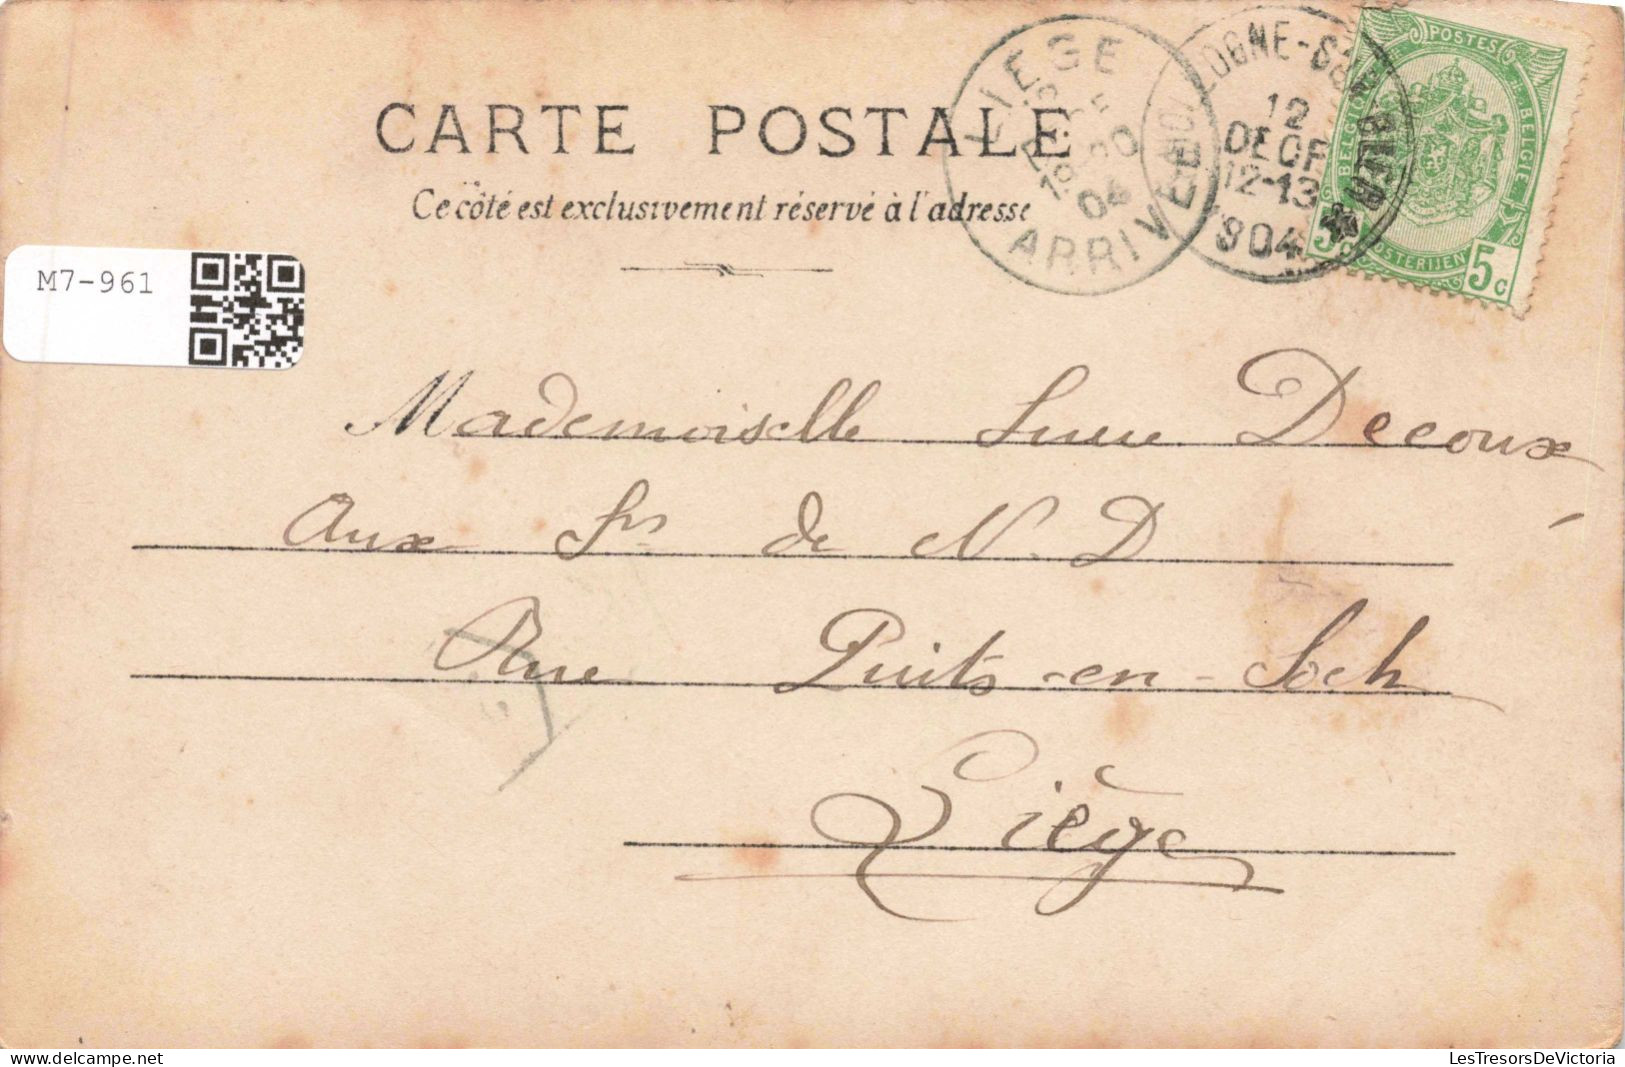 CARTE POSTALE
Ce côté est exclusivement réservé à l'adresse
LIÈGE
ARRIVÉE
12
DECR
12-13
1904
POSTES
BELGIQUE
BELGIË
5c
POSTERIJEN
5c
M7-961
Mademoiselle Decoux
Aux Srs de N. D
Rue Puits-en-Soch
Liège
LesTresorsDeVictoria